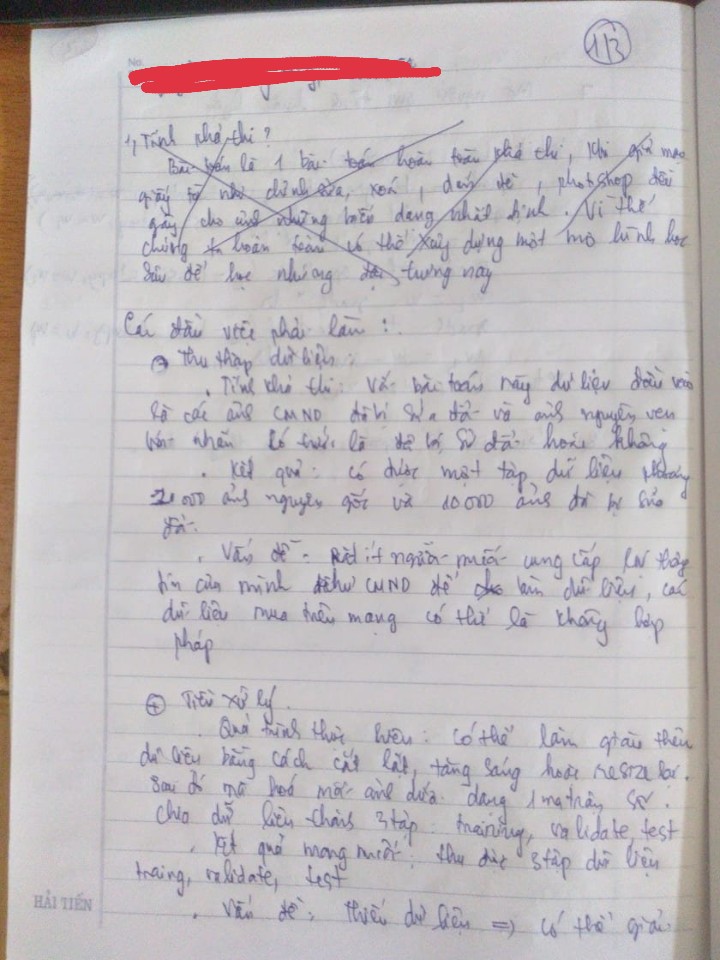 No.
1/3
1, Tính khả thi ?
Bài toán là 1 bài toán hoàn toàn khả thi, khi giả mạo
giấy tờ như chỉnh sửa, xoá, dán đè, photoshop đều
gây cho ảnh những biến dạng nhất định. Vì thế
chúng ta hoàn toàn có thể xây dựng một mô hình học
sâu để học những đặc tưng này
Các đầu việc phải làm :
Thu thập dữ liệu :
. Tính khả thi : Với bài toán này dữ liệu đầu vào
là các ảnh CMND đã bị sửa đổi và ảnh nguyên vẹn
với nhãn là đã bị sử đổi hoặc không
. Kết quả : có được một tập dữ liệu khoảng
10000 ảnh nguyên gốc và 10.000 ảnh đã bị sửa
đổi.
. Vấn đề : Rất ít người muốn cung cấp thông
tin của mình như CMND để làm dữ liệu, các
dữ liệu mua trên mạng có thể là không hợp
pháp
⊕ Tiền xử lý.
. Quá trình thực hiện : có thể làm giàu thêm
dữ liệu bằng cách cắt, lật, tăng sáng hoặc resize lại.
Sau đó mã hoá mỗi ảnh dưới dạng 1 ma trận số.
Chia dữ liệu thành 3 tập : training, validate, test
. Kết quả mong muốn : thu được 3 tập dữ liệu
traing, validate, test
. Vấn đề : thiếu dữ liệu => có thể giải
HẢI TIẾN